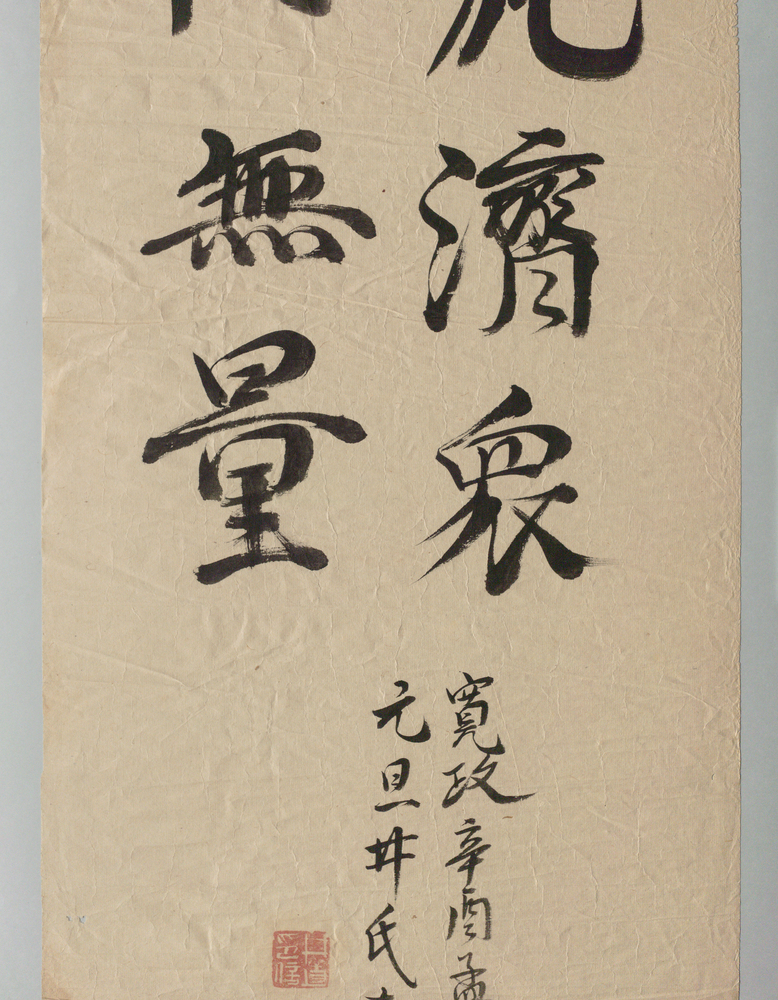 濟衆
無量
寛政辛酉孟
元旦井氏